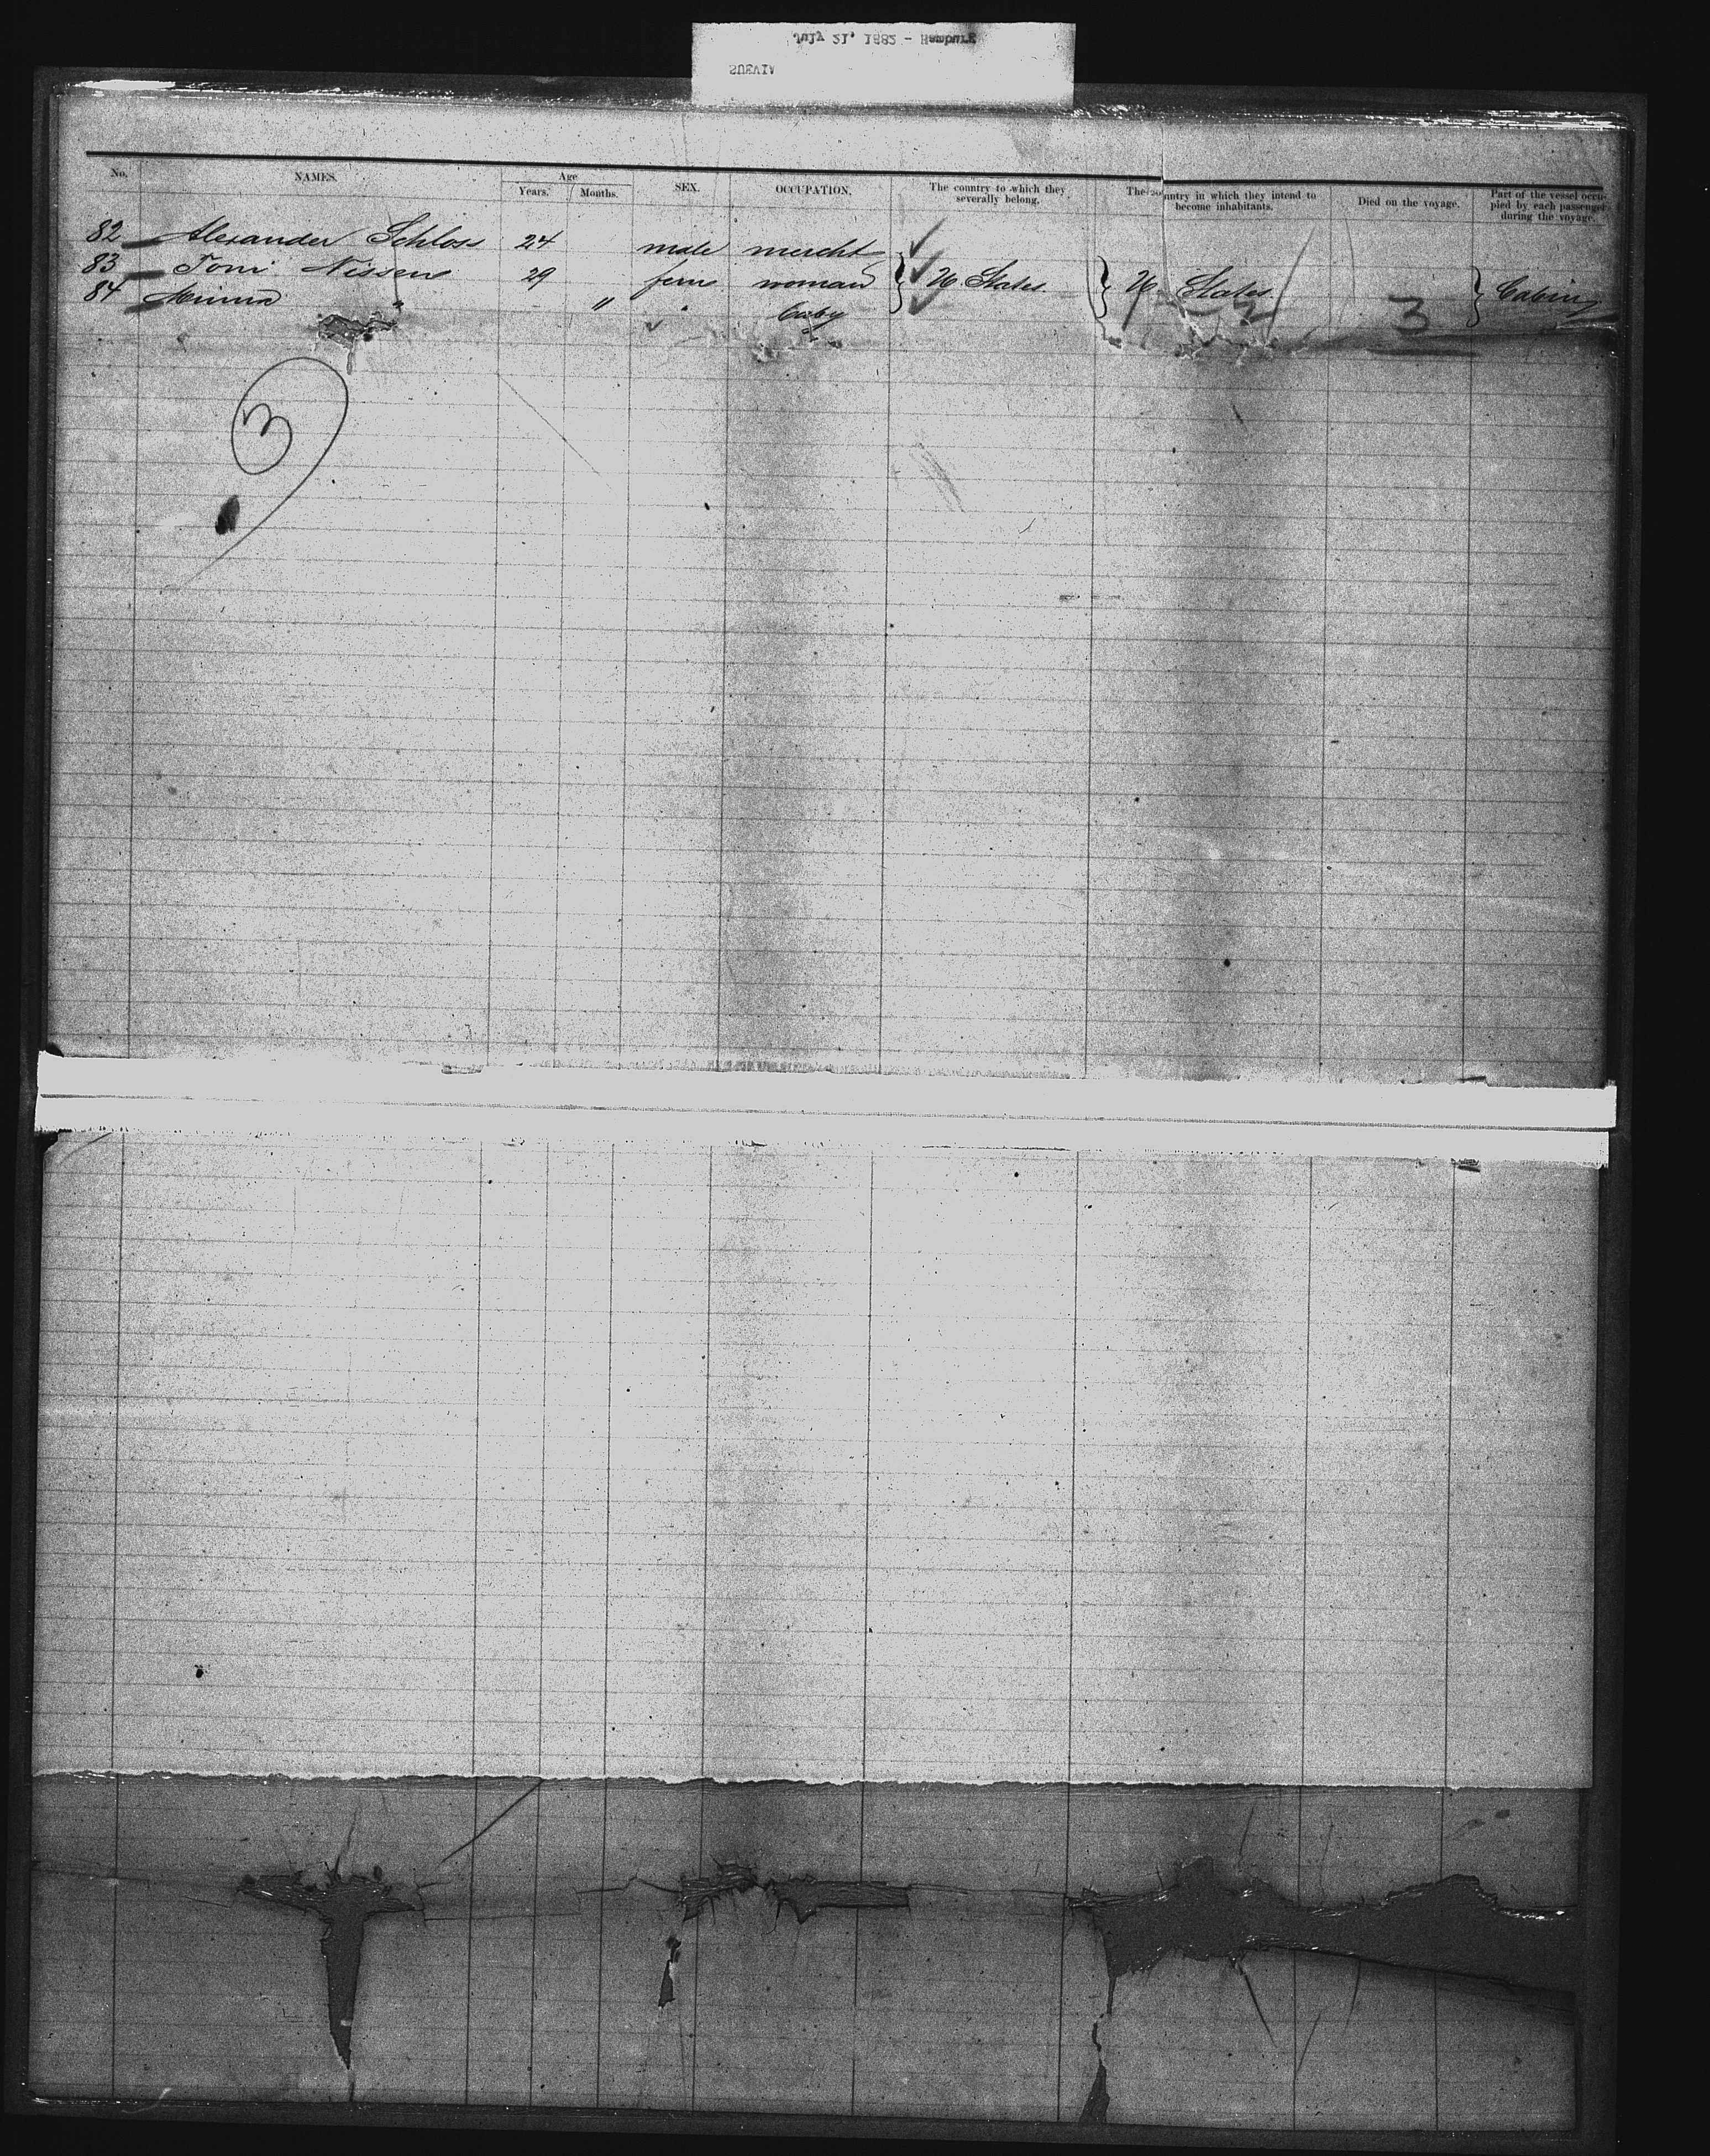 July 21, 1882 - Hamburg
SUEVIA
No. NAMES. Age Years. Months. SEX. OCCUPATION. The country to which they severally belong. The country in which they intend to become inhabitants. Died on the voyage. Part of the vessel occupied by each passenger during the voyage.
82 Alexander Schloss 24 male mercht
83 Toni Nissen 29 fem woman U. States U. States Cabin
84 Minna " " " baby
3
3